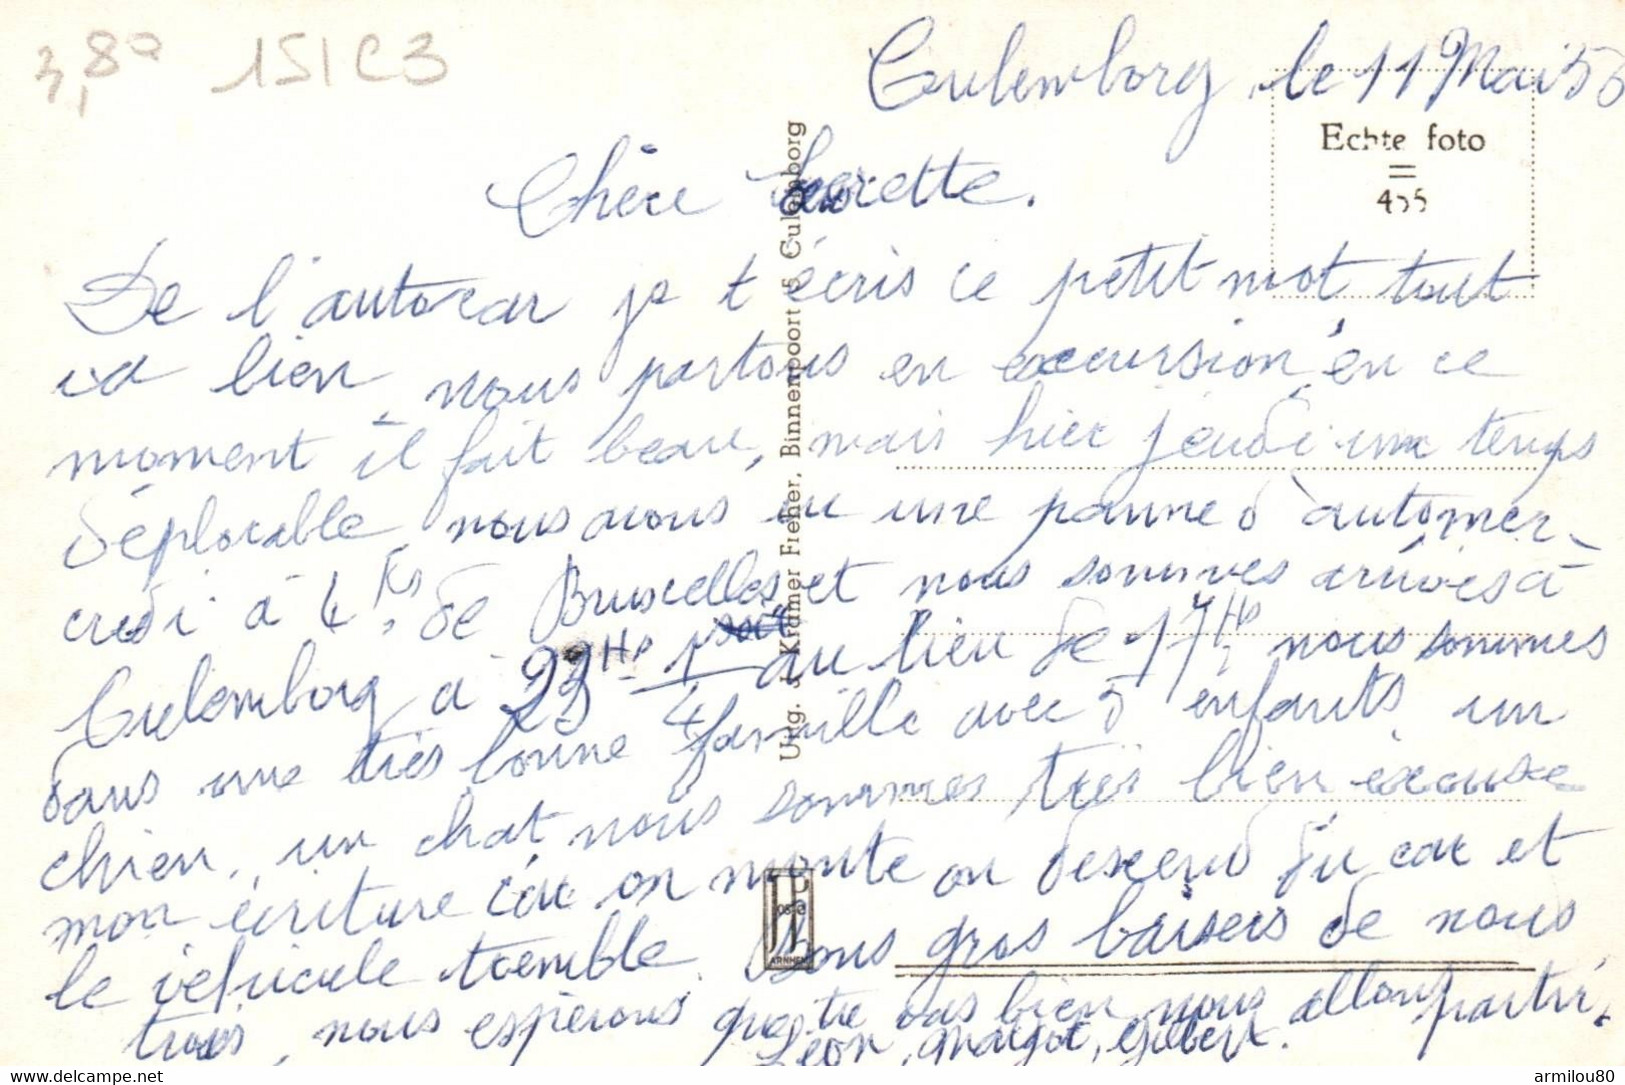 3,80 151C3
Culemborg, le 11 Mai 56
Echte foto
455
Chère Laurette.
De l'autocar je t'écris ce petit mot tout
va bien, nous partons en excursion, en ce
moment il fait beau, mais hier jeudi un temps
déplorable, nous avons eu une panne d'auto mer-
credi à 4 hs de Bruxelles et nous sommes arrivés à
Culemborg a 23 Hs 1/4 au lieu de 17 Hs, nous sommes
dans une très bonne famille avec 5 enfants, un
chien, un chat nous sommes très bien excuse
mon écriture car on monte on descend du car et
le véhicule tremble. Bons gros baisers de nous
trois, nous espérons que tu vas bien nous allons partir.
Léon, Margot, Gilbert.
Uitg. J. Kramer Fieher, Binnenpoort 5, Culemborg
JP
POSTA
ARNHEM
delcampe.net
armilou80